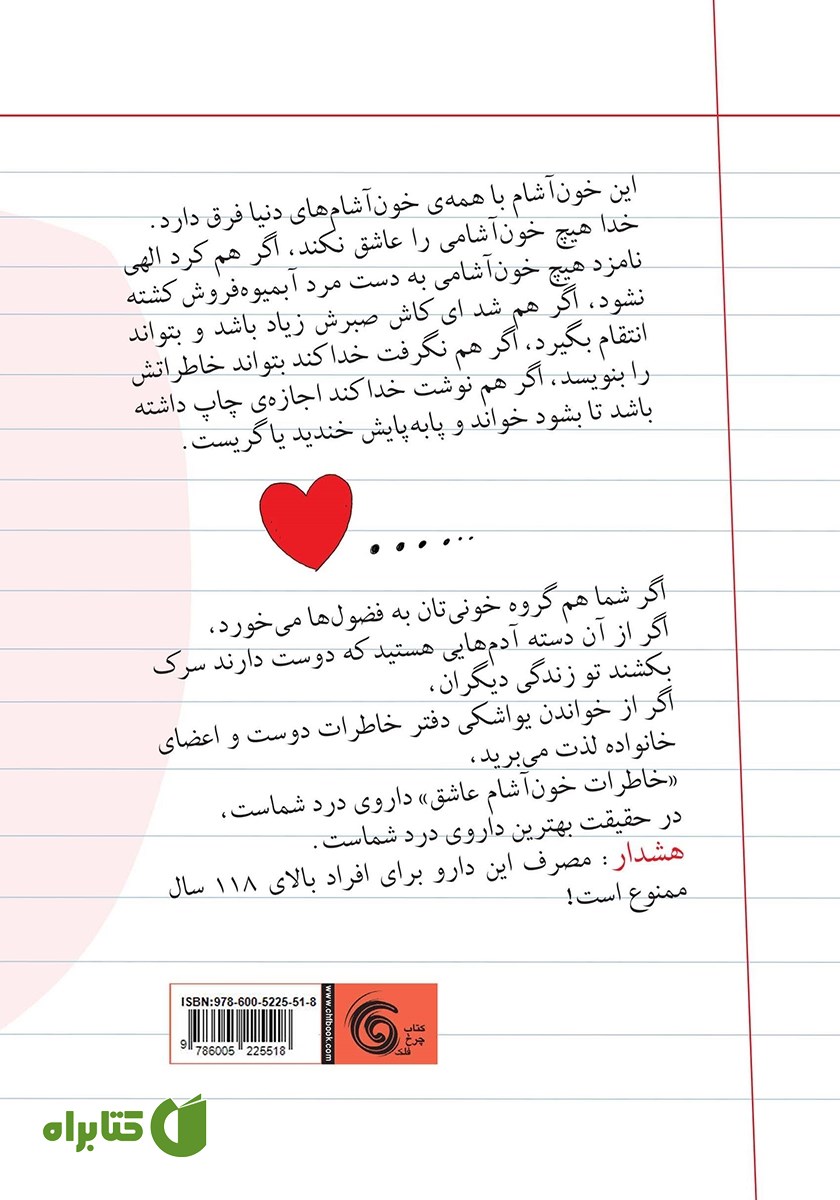 این خون‌آشام با همه‌ی خون‌آشام‌های دنیا فرق دارد.
خدا هیچ خون‌آشامی را عاشق نکند، اگر هم کرد الهی
نامزد هیچ خون‌آشامی به دست مرد آبمیوه‌فروش کشته
نشود، اگر هم شد ای کاش صبرش زیاد باشد و بتواند
انتقام بگیرد، اگر هم نگرفت خدا کند بتواند خاطراتش
را بنویسد، اگر هم نوشت خدا کند اجازه‌ی چاپ داشته
باشد تا بشود خواند و پابه‌پایش خندید یا گریست.
اگر شما هم گروه خونی‌تان به فضول‌ها می‌خورد،
اگر از آن دسته آدم‌هایی هستید که دوست دارند سرک
بکشند تو زندگی دیگران،
اگر از خواندن یواشکی دفتر خاطرات دوست و اعضای
خانواده لذت می‌برید،
«خاطرات خون‌آشام عاشق» داروی درد شماست،
در حقیقت بهترین داروی درد شماست.
هشدار: مصرف این دارو برای افراد بالای ۱۱۸ سال
ممنوع است!
ISBN:978-600-5225-51-8
9 786005 225518
www.chfbook.com
کتاب
چرخ
فلک
کتابراه